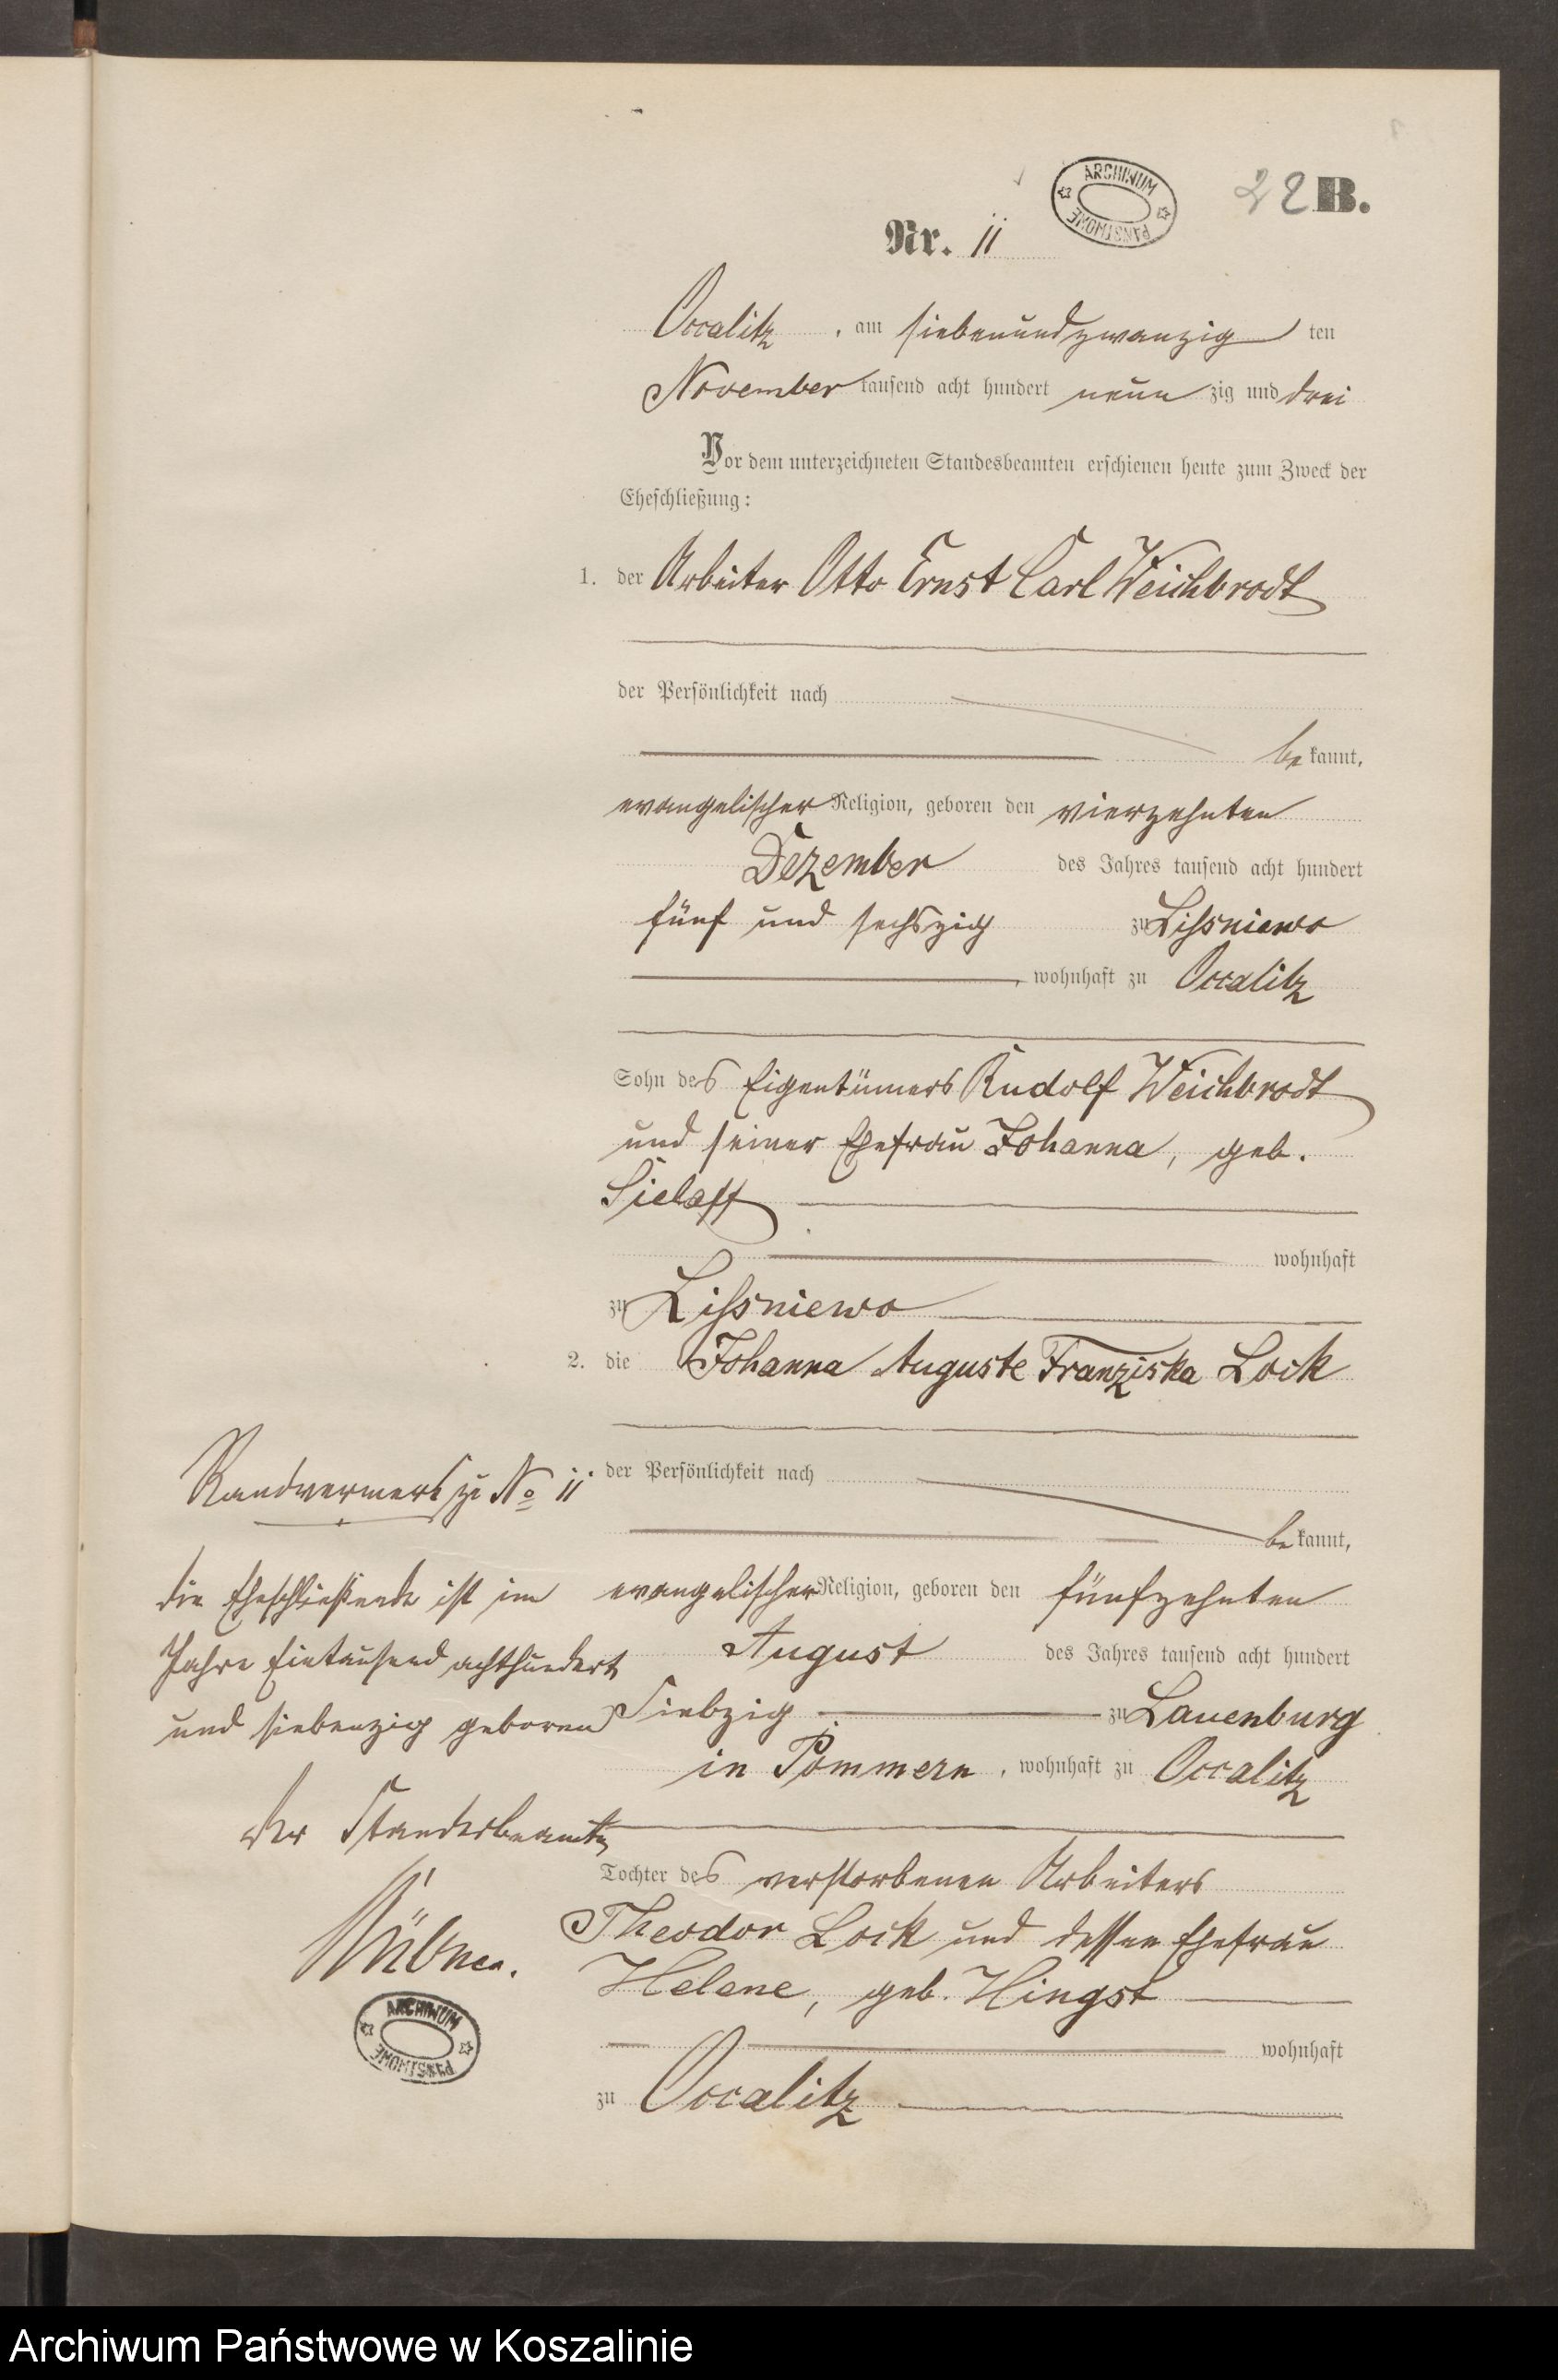 22 B.
ARCHIWUM PAŃSTWOWE
Nr. 11
Occalitz, am siebenundzwanzig ten
November tausend acht hundert neun zig und drei
Vor dem unterzeichneten Standesbeamten erschienen heute zum Zweck der
Eheschließung:
1. der Arbeiter Otto Ernst Carl Weichbrodt
der Persönlichkeit nach
be kannt,
evangelischer Religion, geboren den vierzehnten
Dezember des Jahres tausend acht hundert
fünf und sechszig zu Lissniewo
, wohnhaft zu Occalitz
Sohn des Eigentümers Rudolf Weichbrodt
und seiner Ehefrau Johanna, geb.
Sielaff
wohnhaft
zu Lissniewo
2. die Johanna Auguste Franziska Lock
der Persönlichkeit nach
be kannt,
evangelischer Religion, geboren den fünfzehnten
August des Jahres tausend acht hundert
Siebzig zu Lauenburg
in Pommern, wohnhaft zu Occalitz
Tochter des verstorbenen Arbeiters
Theodor Lock und dessen Ehefrau
Helene, geb. Hingst
wohnhaft
zu Occalitz
Randvermerk zu No 11
die Eheschließende ist im
Jahre Eintausend achthundert
und siebenzig geboren
Der Standesbeamte
ARCHIWUM PAŃSTWOWE
Archiwum Państwowe w Koszalinie